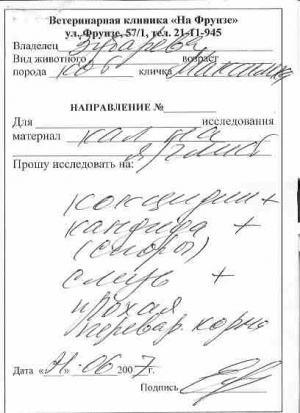 Ветеринарная клиника «На Фрунзе»
ул. Фрунзе, 57/1, тел. 21-11-945
Владелец
Вид животного возраст
порода кличка
НАПРАВЛЕНИЕ №
Для исследования
материал кал на
я/глист
Прошу исследовать на:
кокцидии +
кандида +
(споры)
слизь +
плохая
перевар. корма
Дата « » 06 2007 г.
Подпись